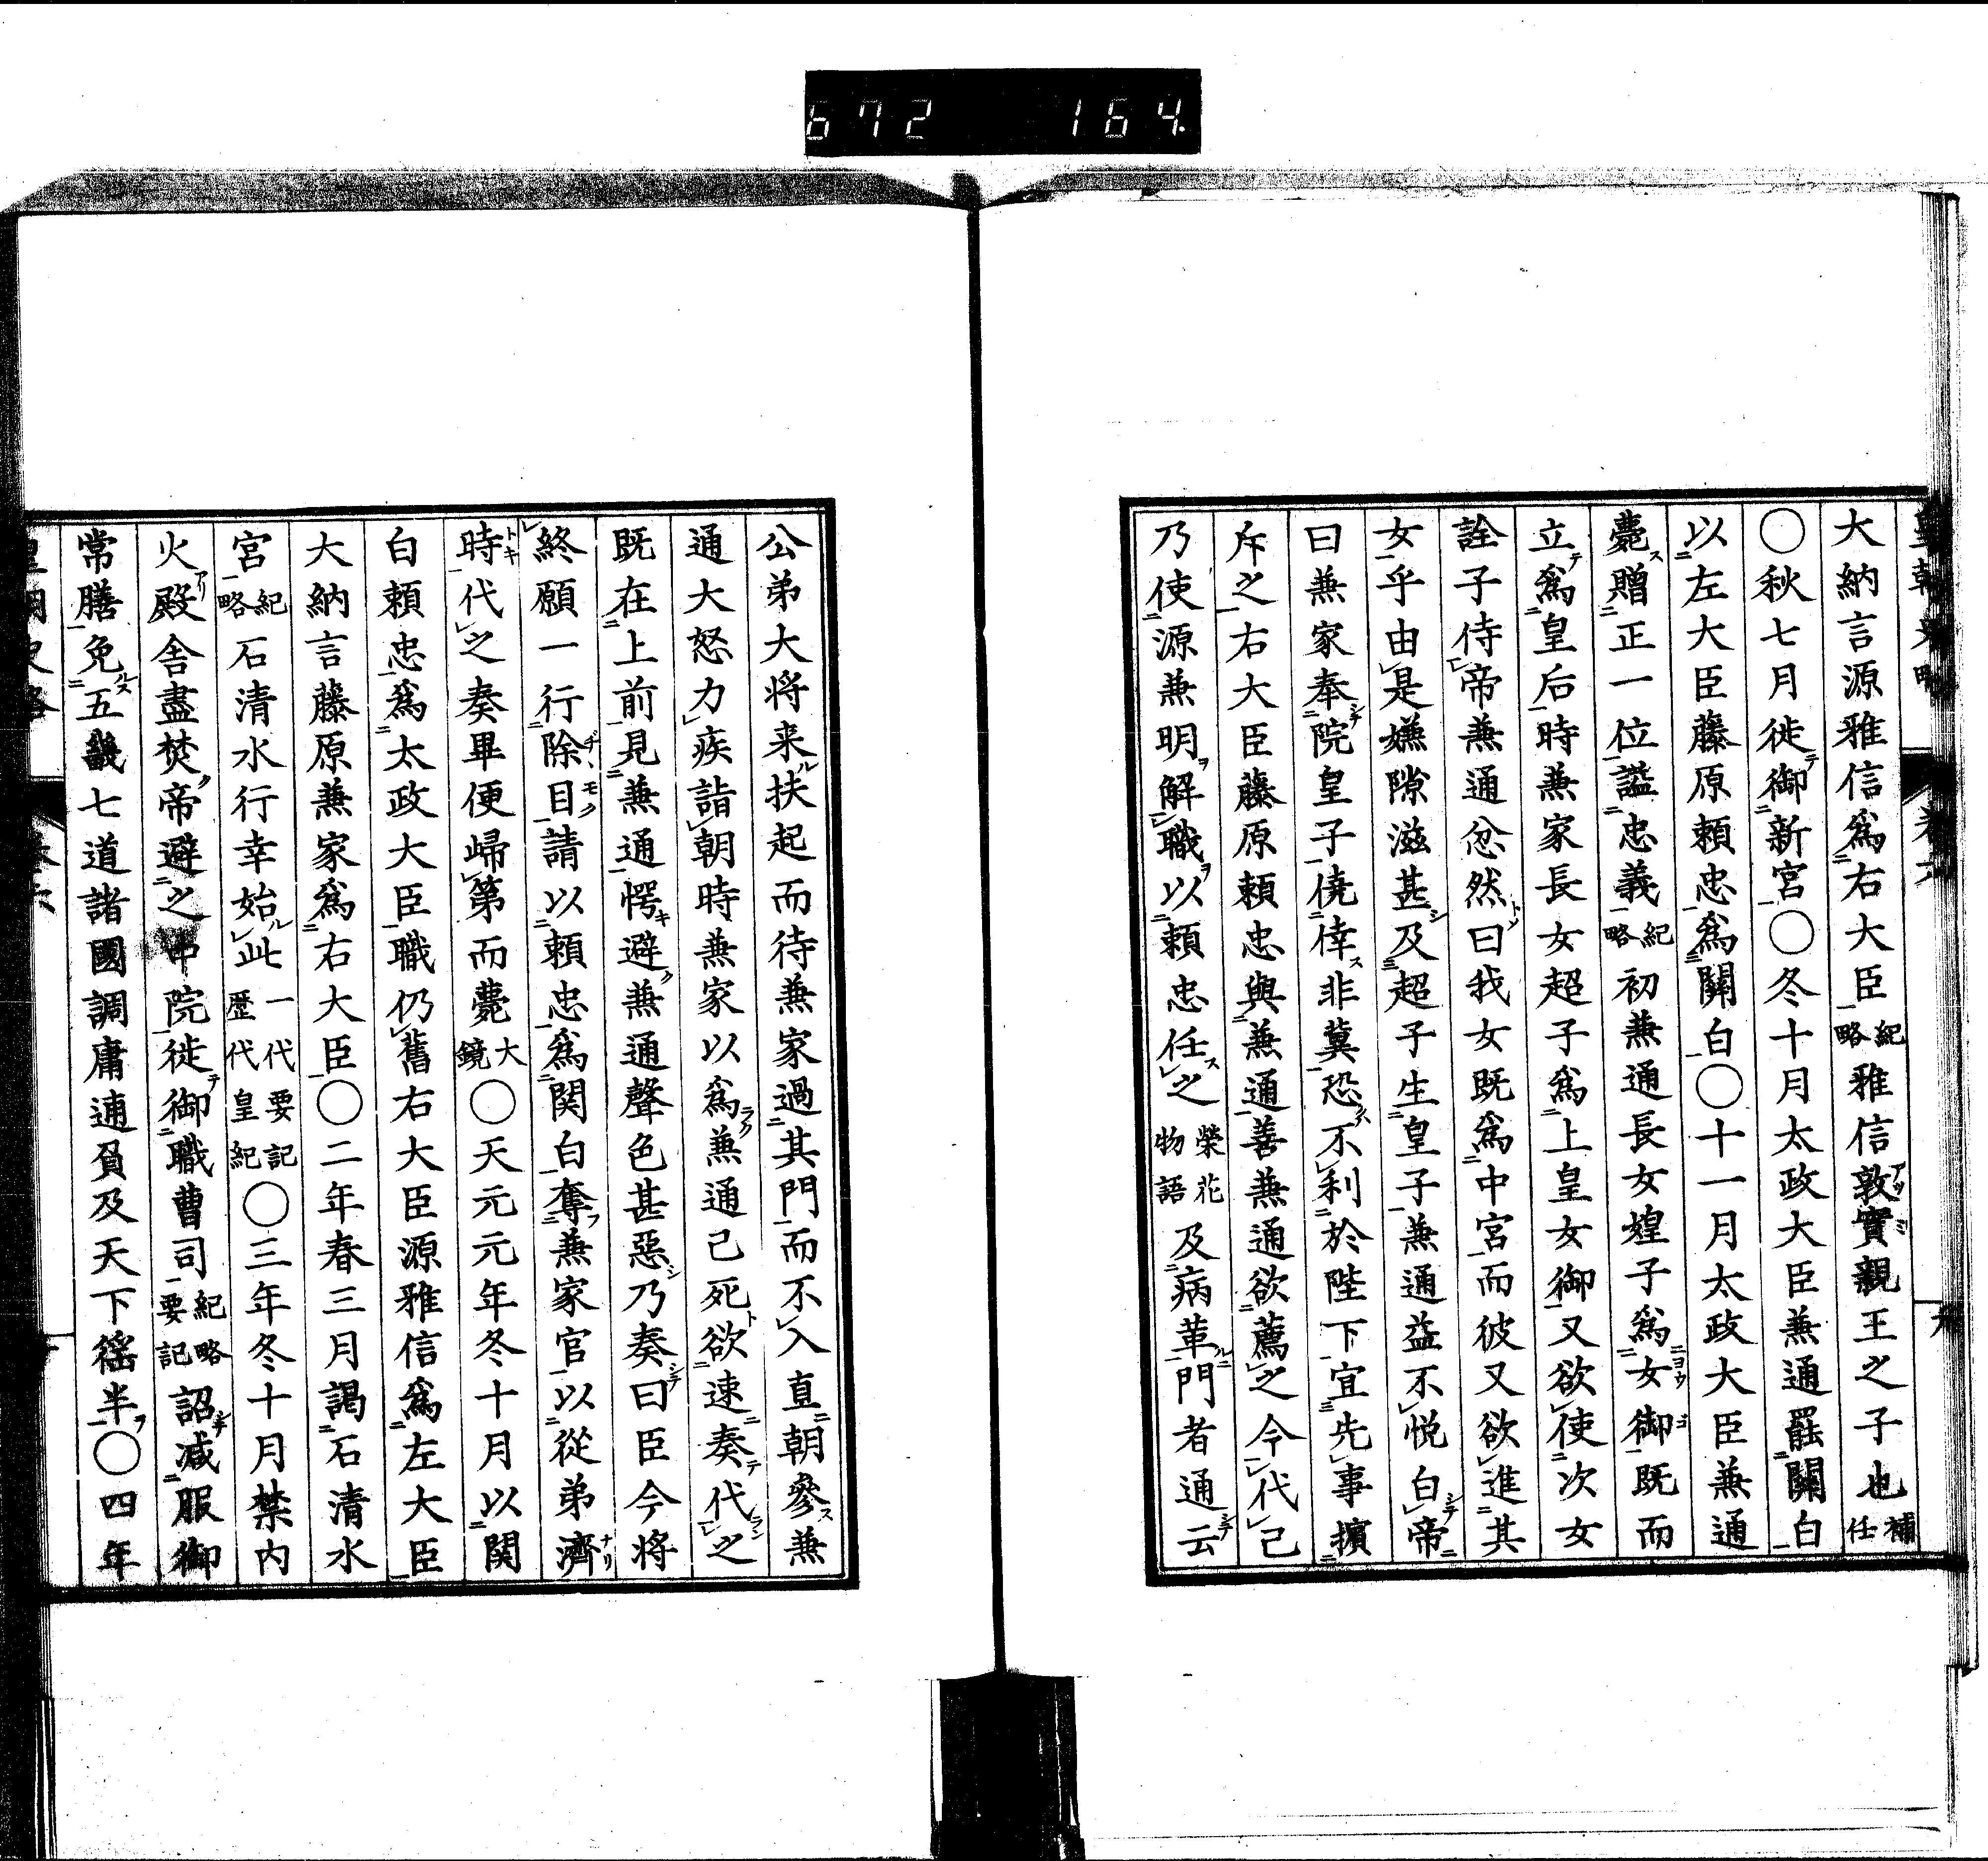 672 164.
大納言源雅信爲右大臣紀略雅信敦實親王之子也補任
○秋七月徙御新宮○冬十月太政大臣兼通罷關白
以左大臣藤原頼忠爲關白○十一月太政大臣兼通
薨贈正一位謚忠義紀略初兼通長女媓子爲女御既而
立爲皇后時兼家長女超子爲上皇女御又欲使次女
詮子侍帝兼通忿然曰我女既爲中宮而彼又欲進其
女乎由是嫌隙滋甚及超子生皇子兼通益不悦白帝
曰兼家奉院皇子僥倖非冀恐不利於陛下宜先事擯
斥之右大臣藤原頼忠與兼通善兼通欲薦之今代己
乃使源兼明解職以頼忠任之榮花物語及病革門者通云
公弟大将来扶起而待兼家過其門而不入直朝參兼
通大怒力疾詣朝時兼家以爲兼通已死欲速奏代之
既在上前見兼通愕避兼通聲色甚惡乃奏曰臣今将
終願一行除目請以頼忠爲関白奪兼家官以從弟濟
時代之奏畢便歸第而薨大鏡○天元元年冬十月以関
白頼忠爲太政大臣職仍舊右大臣源雅信爲左大臣
大納言藤原兼家爲右大臣○二年春三月謁石清水
宮紀略石清水行幸始此一代要記歷代皇紀○三年冬十月禁内
火殿舎盡焚帝避之中院徙御職曹司紀略要記詔减服御
常膳免五畿七道諸國調庸逋負及天下徭半○四年